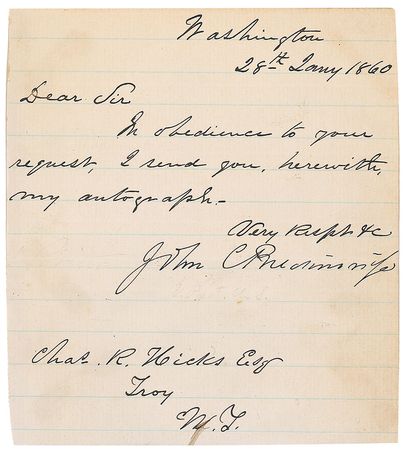 Washington
28th Jany 1860
Dear Sir
In obedience to your
request, I send you, herewith,
my autograph.-
Very Respt &c
John C Breckinridge
Chas. R. Hicks Esq
Troy
N.Y.